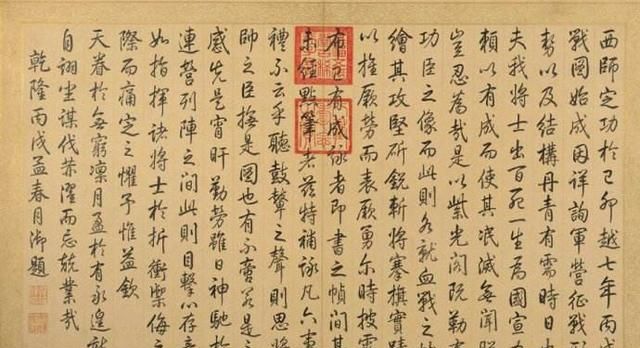 西師定功於己卯越七年丙戌
戰圖始成因詳詢軍營征戰形
勢以及結構丹青有需時日也
夫我將士出百死一生為國宣力
賴以有成而使其泯滅無聞朕
豈忍為哉是以紫光閣既勒有
功臣之像而此則各就血戰之地
繪其攻堅斫銳斬將搴旗實蹟
以推厥勞而表厥勇爾時披露
布已有成詠者即書之幀間其
未經點筆者茲特補詠凡六事
禮不云乎聽鼓鼙之聲則思將
帥之臣撫是圖也有不啻若是之
感先是宵旰勤勞雖日神馳於
連營列陣之間此則目擊心存
如指揮諸將士於折衝禦侮之
際而痛定之懼予惟益欽
天眷於無窮凜月盈於有永遑敢
自詡坐謀伐濯而忘兢業哉
乾隆丙戌孟春月御題